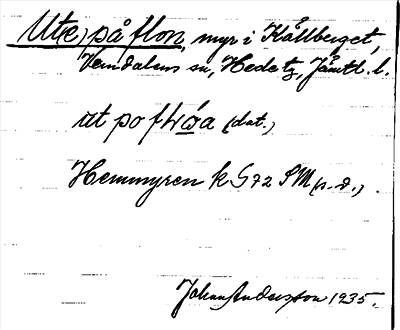 Ute) på flon, myr i Källberget,
Vemdalens sn, Hede tg, Jämtl. l.
ut po
(dat.)
Hemmyren k S 72 SM (s. d.).
Johan Andersson 1935.